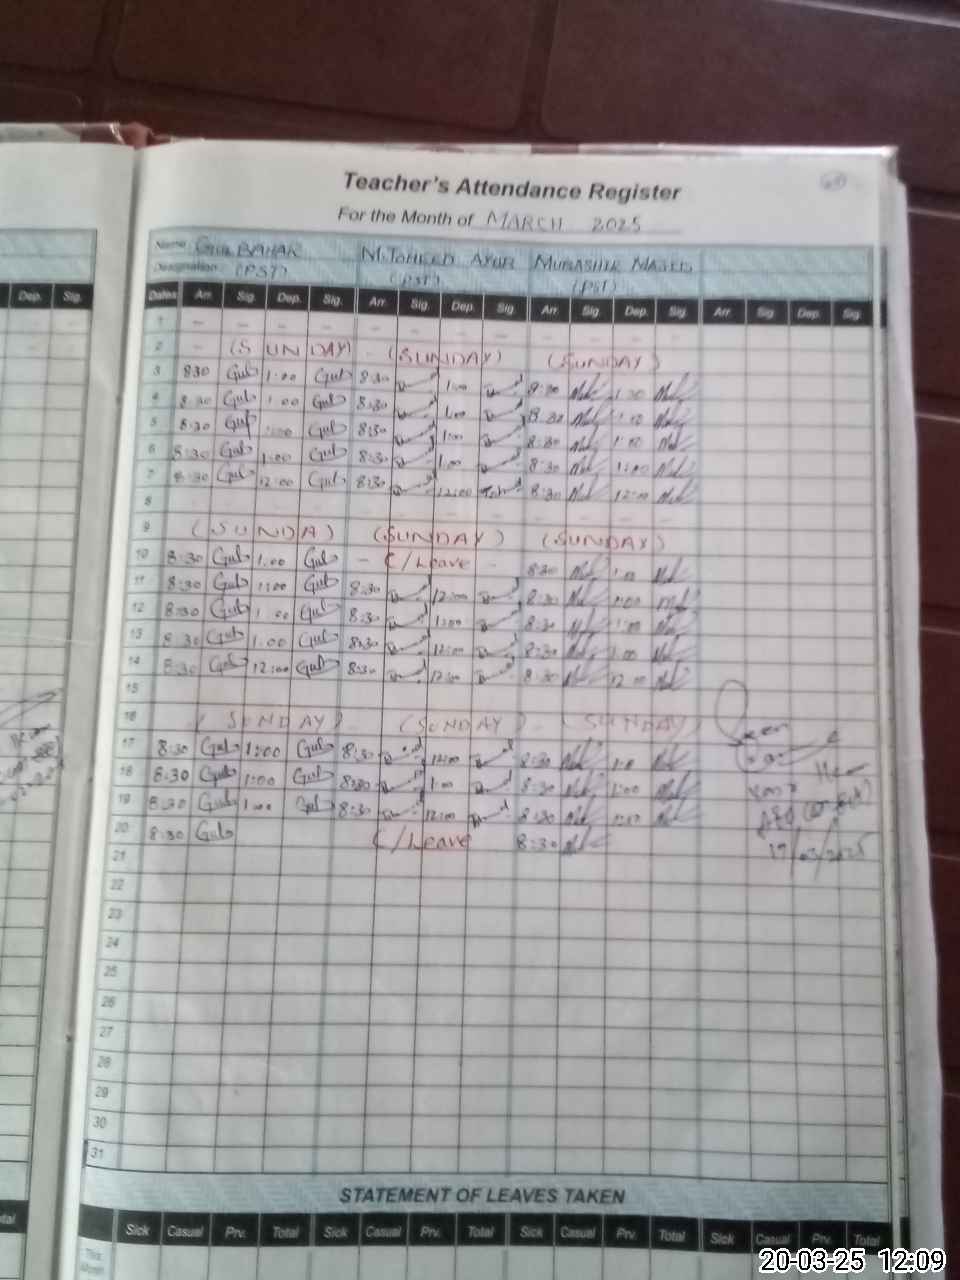 Teacher's Attendance Register
For the Month of MARCH 2025
Name GUL BAHAR M. TOHEED AYUB MUBASHIR MAJEED
Designation (PST) (PST) (PST)
Dep. Sig. Dates Arr. Sig. Dep. Sig. Arr. Sig. Dep. Sig. Arr. Sig. Dep. Sig. Arr. Sig. Dep. Sig.
1 - - - - - - - -
2 - (SUNDAY) - (SUNDAY) (SUNDAY)
3 830 Gul 1:00 Gul 8:30 1:00
4 8:30 Gul 1:00 Gul 8:30 1:00 8:30
5 8:30 Gul 1:00 Gul 8:30 1:00 8:30 1:00
6 8:30 Gul 1:00 Gul 8:30 1:00 8:30 1:00
7 8:30 Gul 12:00 Gul 8:30 12:00 8:30 12:00
8
9 (SUNDA) (SUNDAY) (SUNDAY)
10 8:30 Gul 1:00 Gul - C/Leave - 8:30 1:00
11 8:30 Gul 1:00 Gul 8:30 12:00 8:30 1:00
12 8:30 Gul 1:00 Gul 8:30 1:00 8:30 1:00
13 8:30 Gul 1:00 Gul 8:30 12:00 8:30 1:00
14 8:30 Gul 12:00 Gul 8:30 12:00 8:30 12:00
15
16 (SUNDAY) - (SUNDAY) - (SUNDAY)
17 8:30 Gul 1:00 Gul 8:30 12:00 8:30 1:0
18 8:30 Gul 1:00 Gul 8:30 1:00 8:30 1:00
19 8:30 Gul 1:00 Gul 8:30 12:00 8:30
20 8:30 Gul C/Leave 8:30
19/03/2025
21
22
23
24
25
26
27
28
29
30
31
STATEMENT OF LEAVES TAKEN
Sick Casual Prv. Total Sick Casual Prv. Total Sick Casual Prv. Total Sick Casual Prv. Total
This Month
20-03-25 12:09